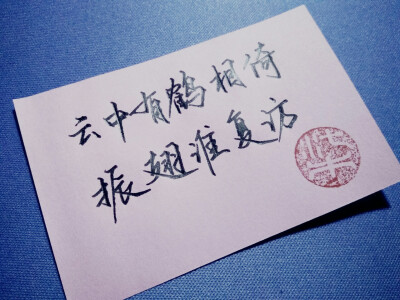 云中有鹤相倚
振翅谁复访